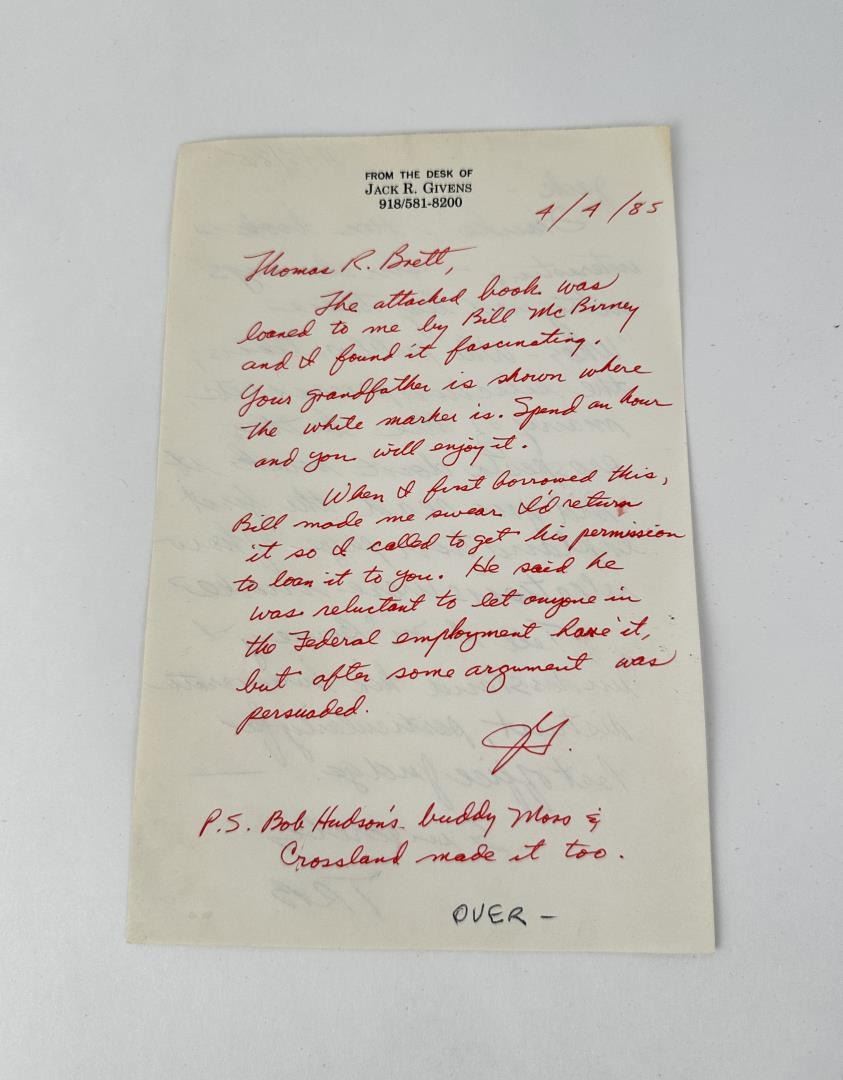 FROM THE DESK OF
JACK R. GIVENS
918/581-8200
4/4/85
Thomas R. Brett,
The attached book was
loaned to me by Bill McBirney
and I found it fascinating.
Your grandfather is shown where
the white marker is. Spend an hour
and you will enjoy it.
When I first borrowed this,
Bill made me swear I'd return
it so I called to get his permission
to loan it to you. He said he
was reluctant to let anyone in
the Federal employment have it,
but after some argument was
persuaded.
JG.
P.S. Bob Hudson's buddy Moss &
Crossland made it too.
OVER -